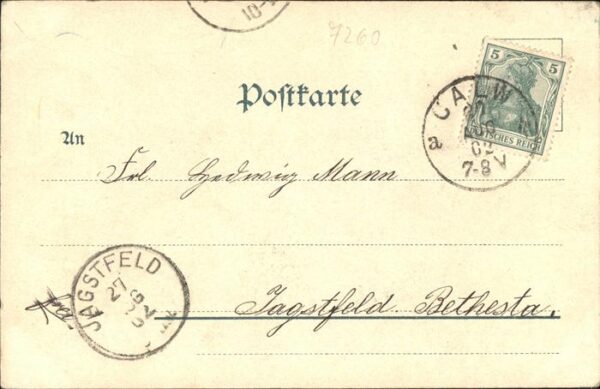 10-
7260
5 5
DEUTSCHES REICH
CALW
a
02
7-8V
Postkarte
An
Frl. Hedwig Mann
JAGSTFELD
27
02
Jagstfeld Bethesta.